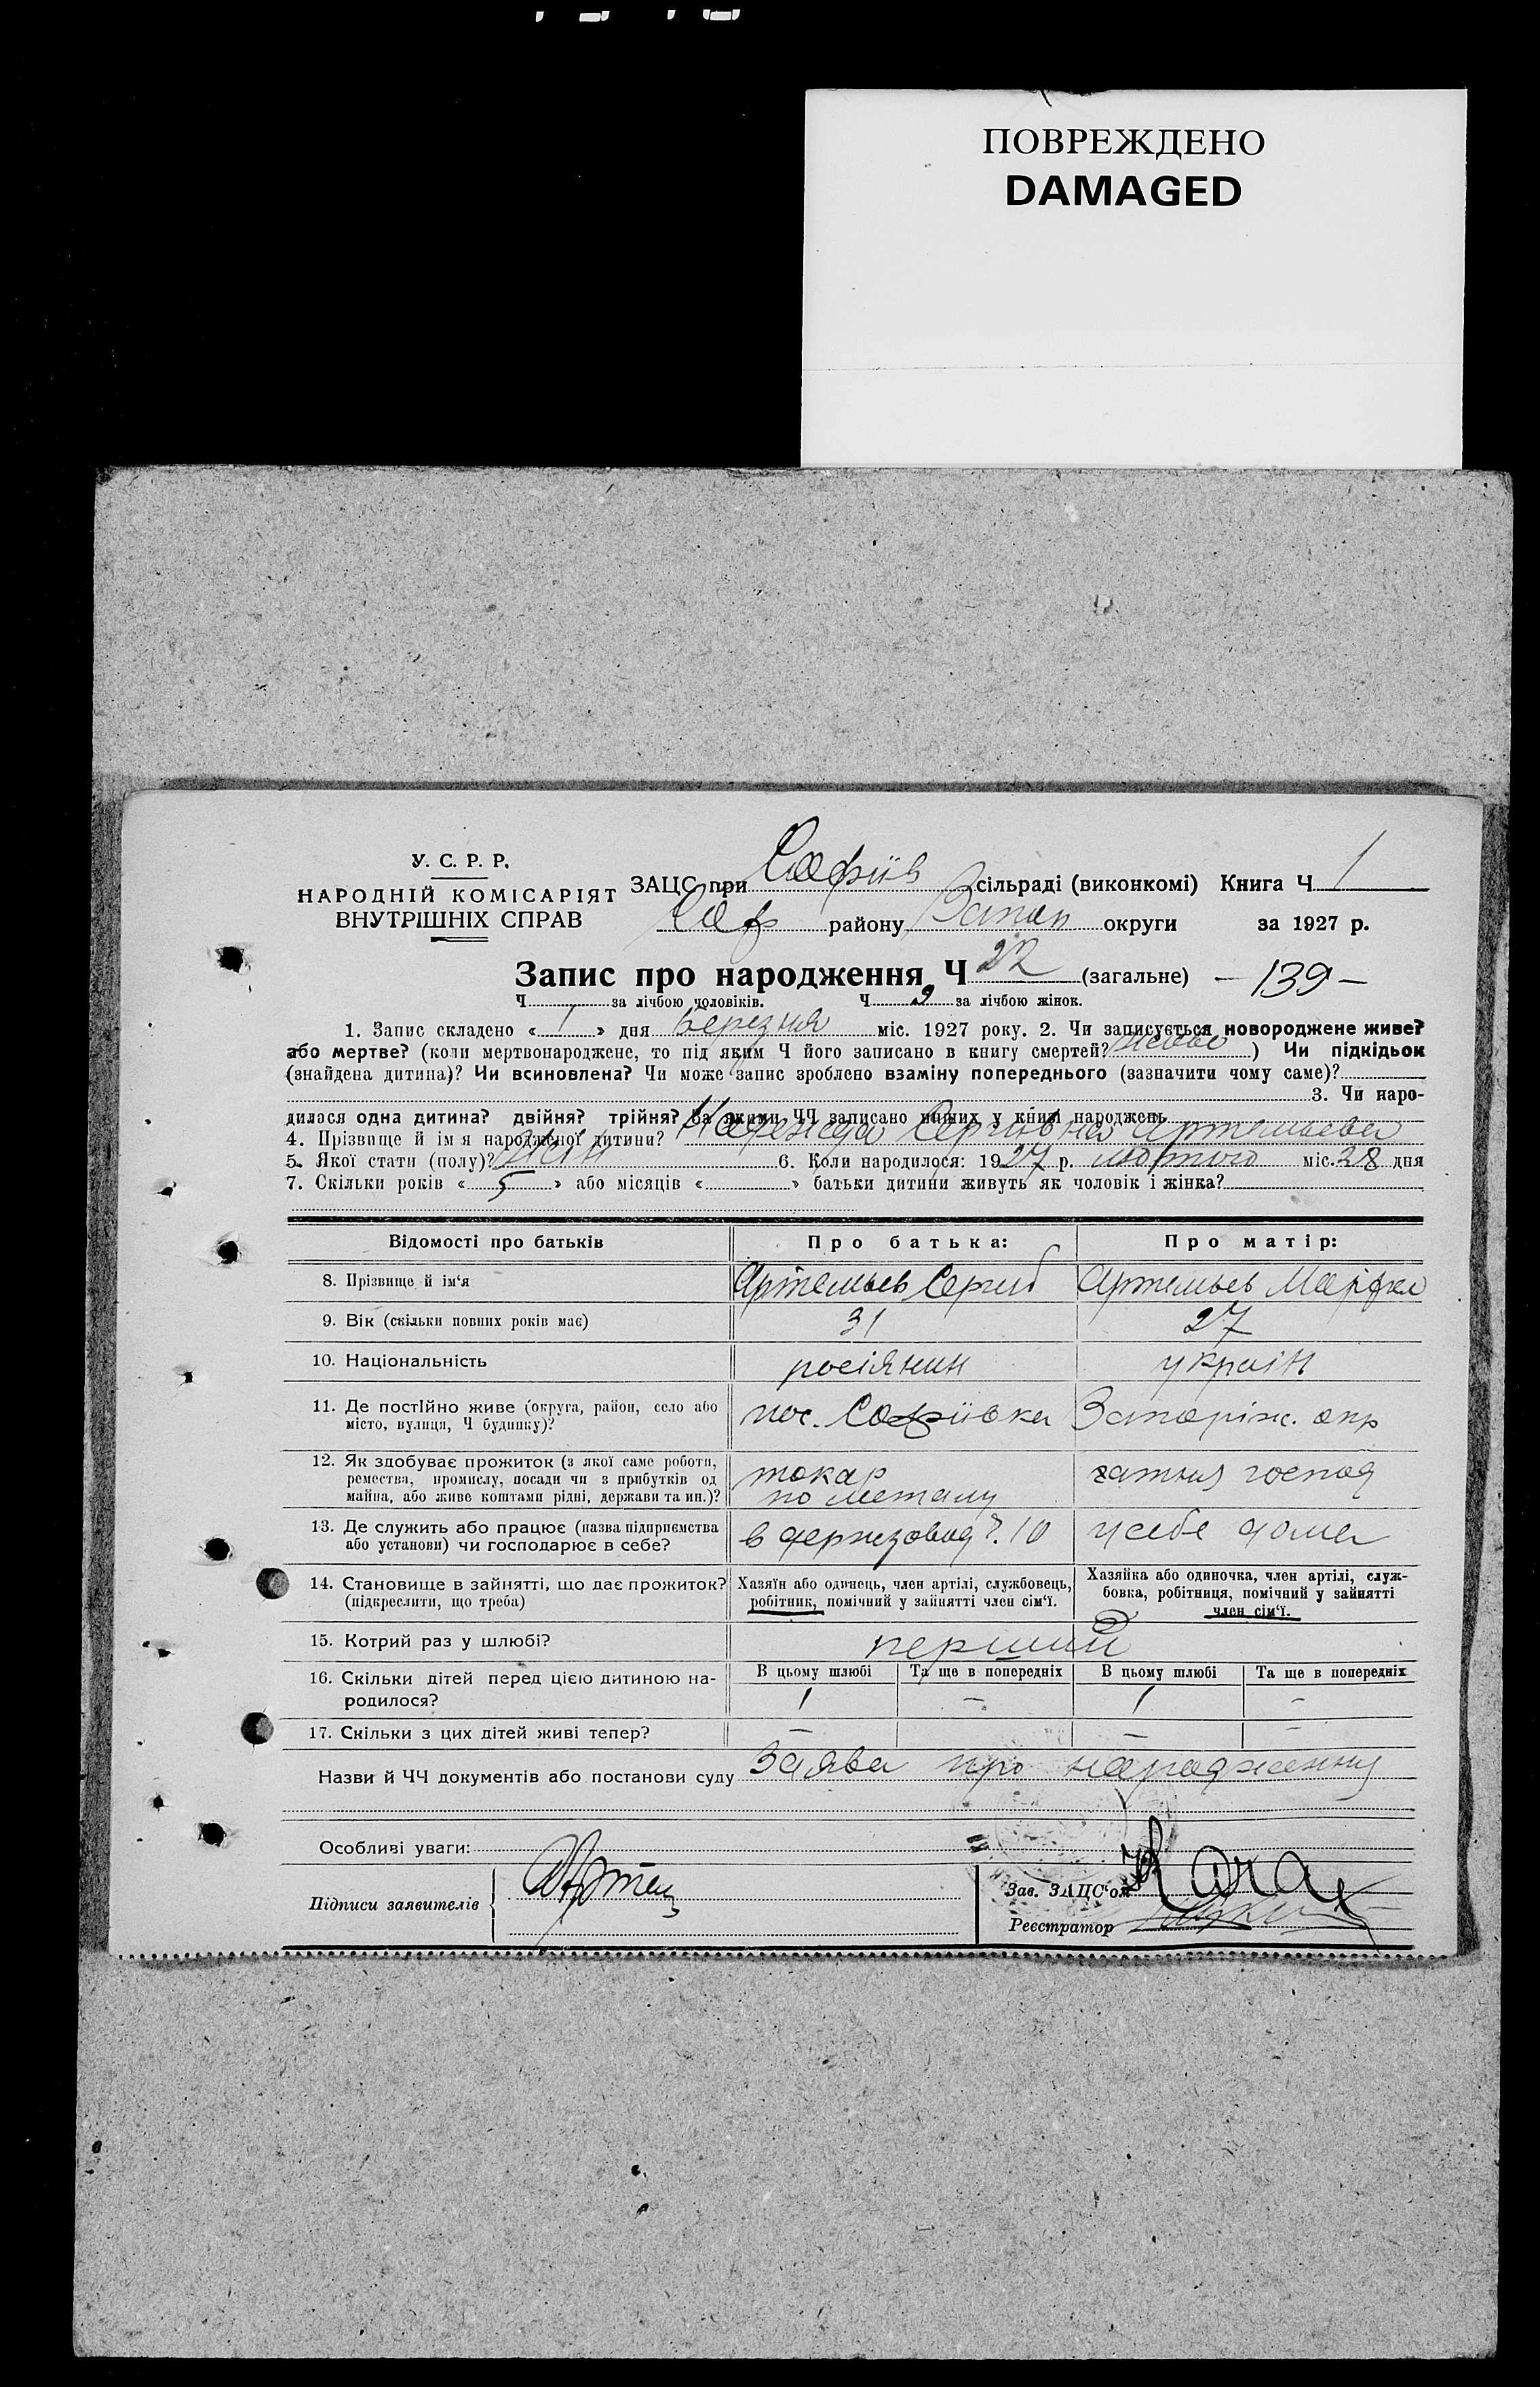 ПОВРЕЖДЕНО
DAMAGED
У. С. Р. Р.
НАРОДНІЙ КОМІСАРІЯТ
ВНУТРІШНІХ СПРАВ
ЗАЦС при Софіїв сільраді (виконкомі) Книга Ч 1
Соф району Запор округи за 1927 р.
Запис про народження Ч 22 (загальне) — 139 —
Ч за лічбою чоловіків. Ч 9 за лічбою жінок.
1. Запис складено « 1 » дня березня міс. 1927 року. 2. Чи записується новороджене живе?
або мертве? (коли мертвонароджене, то під яким Ч його записано в книгу смертей? живе ) Чи підкідьок
(знайдена дитина)? Чи всиновлена? Чи може запис зроблено взаміну попереднього (зазначити чому саме)?
3. Чи наро-
дилася одна дитина? двійня? трійня? За якими ЧЧ записано інших у книзі народжень
4. Прізвище й ім я народженої дитини? Надежда Сергіївна Артемьева
5. Якої стати (полу)? жін 6. Коли народилося: 1927 р. лютого міс. 28 дня
7. Скільки років « 5 » або місяців « » батьки дитини живуть як чоловік і жінка?
Відомості про батьків Про батька: Про матір:
8. Прізвище й ім‘я Артемьев Сергий Артемьев Марфа
9. Вік (скільки повних років має) 31 27
10. Національність росіянин україн
11. Де постійно живе (округа, район, село або пос. Софіївка Запоріж. окр
місто, вулиця, Ч будинку)?
12. Як здобуває прожиток (з якої саме роботи, токар господ
ремества, промислу, посади чи з прибутків од по металу
майна, або живе коштами рідні, держави та ин.)?
13. Де служить або працює (назва підприємства в держзавод 10 у себе дома
або установи) чи господарює в себе?
14. Становище в зайнятті, що дає прожиток? Хазяїн або одинець, член артілі, службовець, Хазяйка або одиночка, член артілі, служ-
(підкреслити, що треба) робітник, помічний у зайнятті член сім‘ї. бовка, робітниця, помічний у зайнятті
член сім‘ї.
15. Котрий раз у шлюбі? перший
16. Скільки дітей перед цією дитиною на- В цьому шлюбі Та ще в попередніх В цьому шлюбі Та ще в попередніх
родилося? 1 — 1 —
17. Скільки з цих дітей живі тепер? — — —
Назви й ЧЧ документів або постанови суду Заява про народження
Особливі уваги:
Підписи заявителів Артем
Зав. ЗАЦС‘ом
Реєстратор